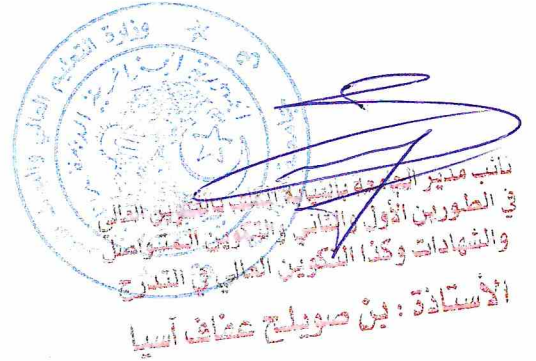 وزارة التعليم العالي
نائب مدير الجامعة بالنيابة المكلف بالتكوين العالي
في الطورين الأول والثاني والتكوين المتواصل
والشهادات وكذا التكوين العالي في التدرج
الأستاذة : بن صويلح عفاف آسيا